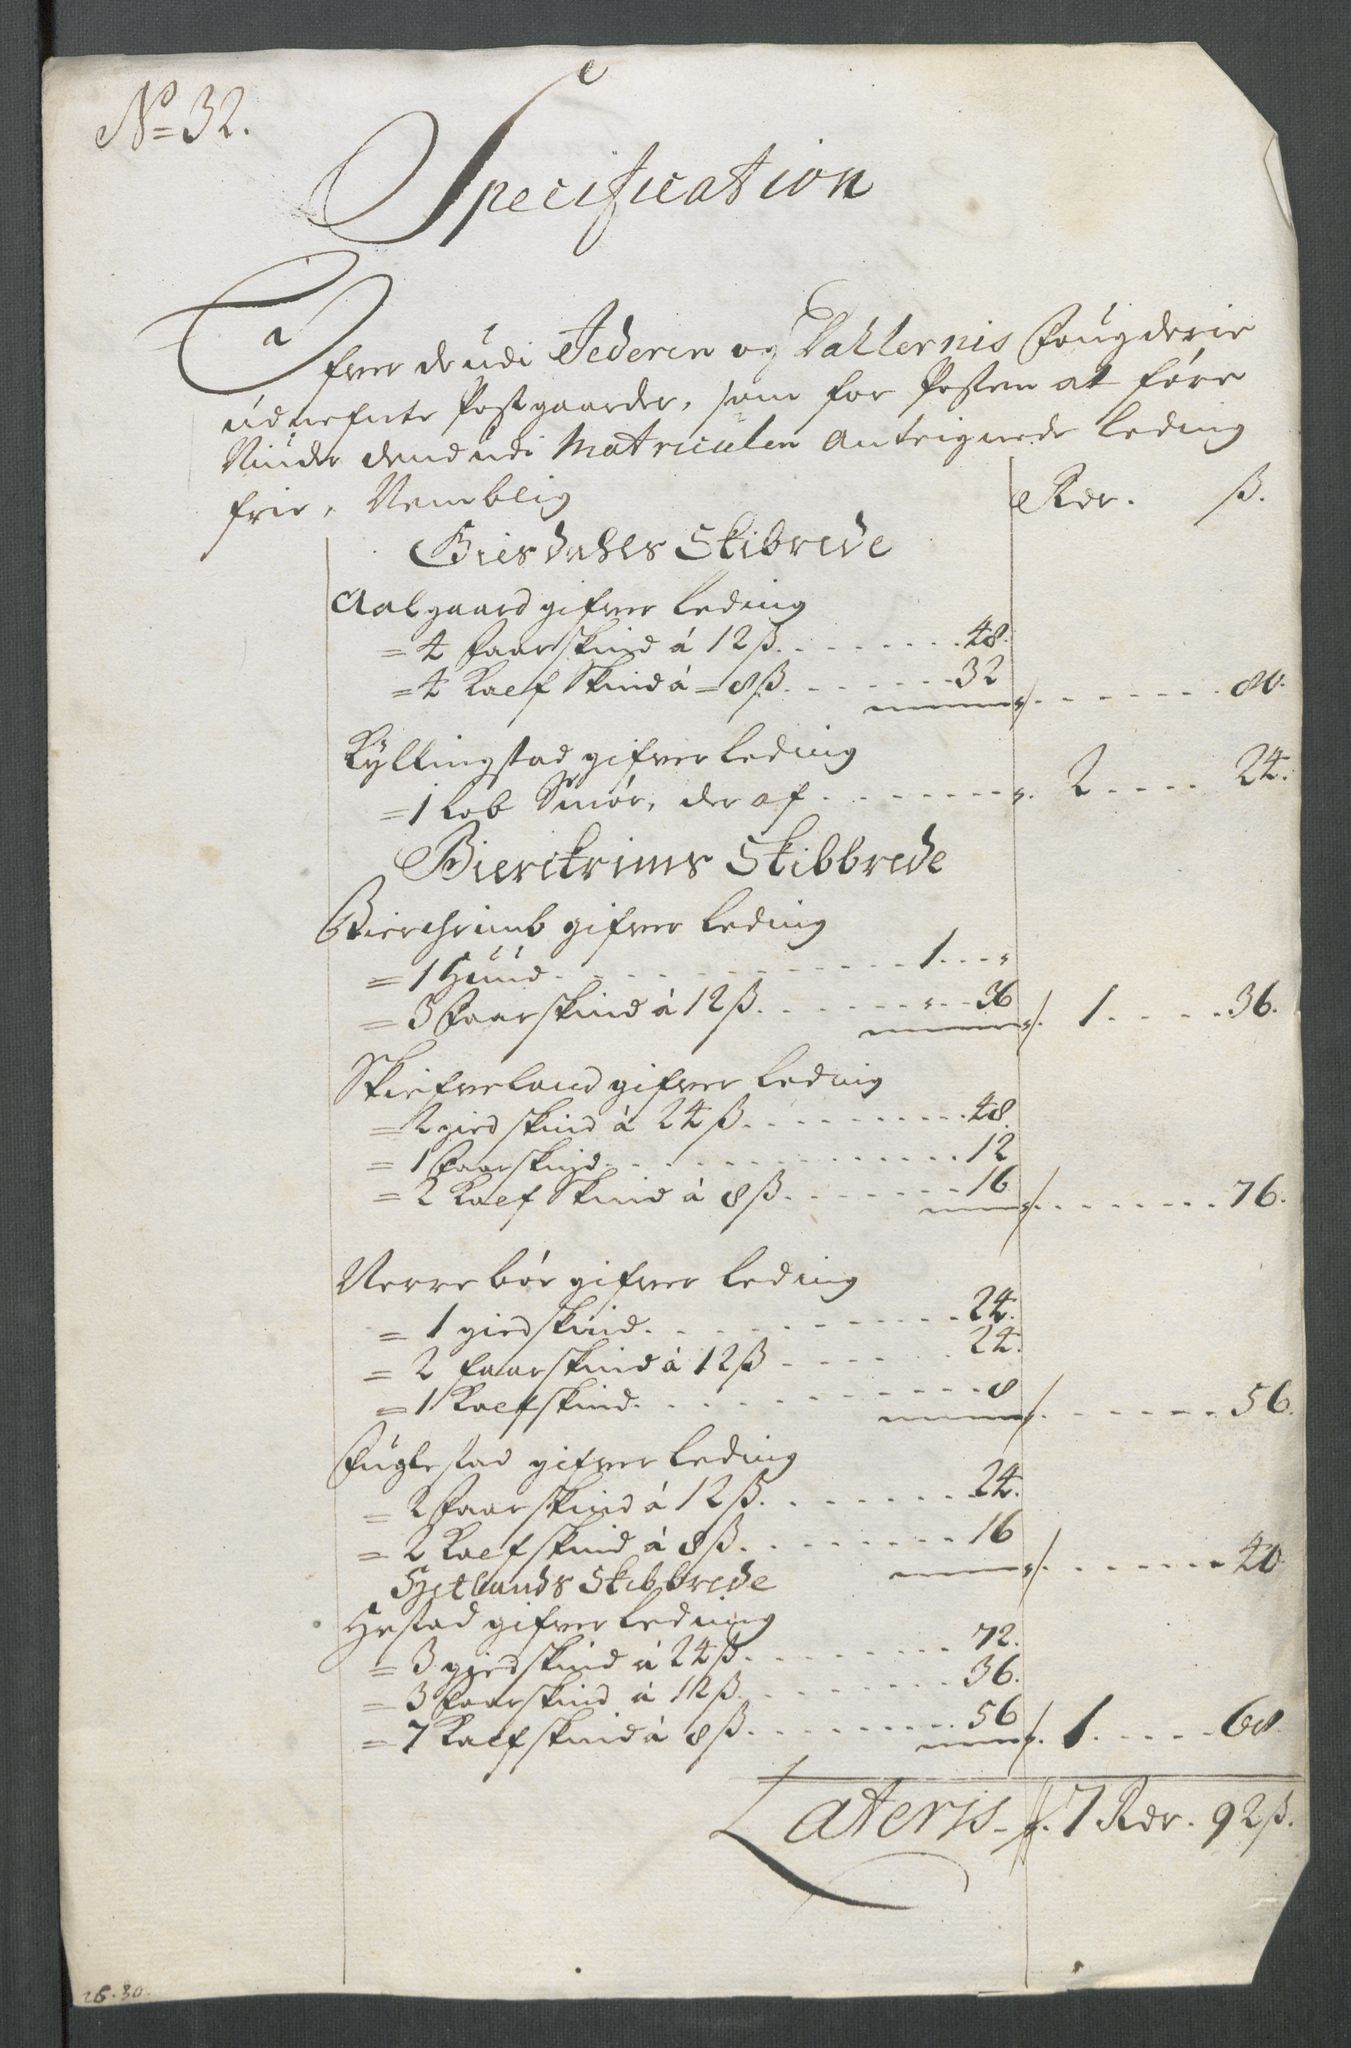 No 32.
Specification
Ofver de udi Jederen og Dahlernis Fougderie
udnefnte Postgaarder, som for Posten at føre
Niuder dend udi Matriculen Anteignede leding
frie, Nemblig
Rdr. ß.
Giesdahls Skibrede
Aalgaard gifver leding
= 4 Faarskind á 12 ß. 48.
= 4 Kalf Skind á = 8 ß. 32 /. 80.
Kyllingstad gifver leding
= 1 Lob Smør, der af 2 24.
Bierckrims Skibbrede
Bierchrimb gifver leding
= 1 Hund 1 "
= 3 Faarskind á 12 ß. " 36 /. 1 36.
Skiefveland gifver leding
= 2 gied skind á 24 ß. 48.
= 1 Faarskind 12
= 2 Kalf Skind á 8 ß. 16 /. 76.
Nerrebøe gifver leding
= 1 giedskind 24.
= 2 faarskind á 12 ß 24.
= 1 Kalfskind 8 /. 56.
Fuglestad gifver leding
= 2 Faarskind á 12 ß. 24.
= 2 Kalfskind á 8 ß. 16 /. 40
Hetlands Skibbrede
Hestad gifver leding
= 3 giedskind á 24 ß. 72.
= 3 Faarskind á 12 ß. 36.
= 7 Kalfskind á 8 ß. 56 /. 1 68.
Lateris 7 Rdr. 92 ß.
26.30.